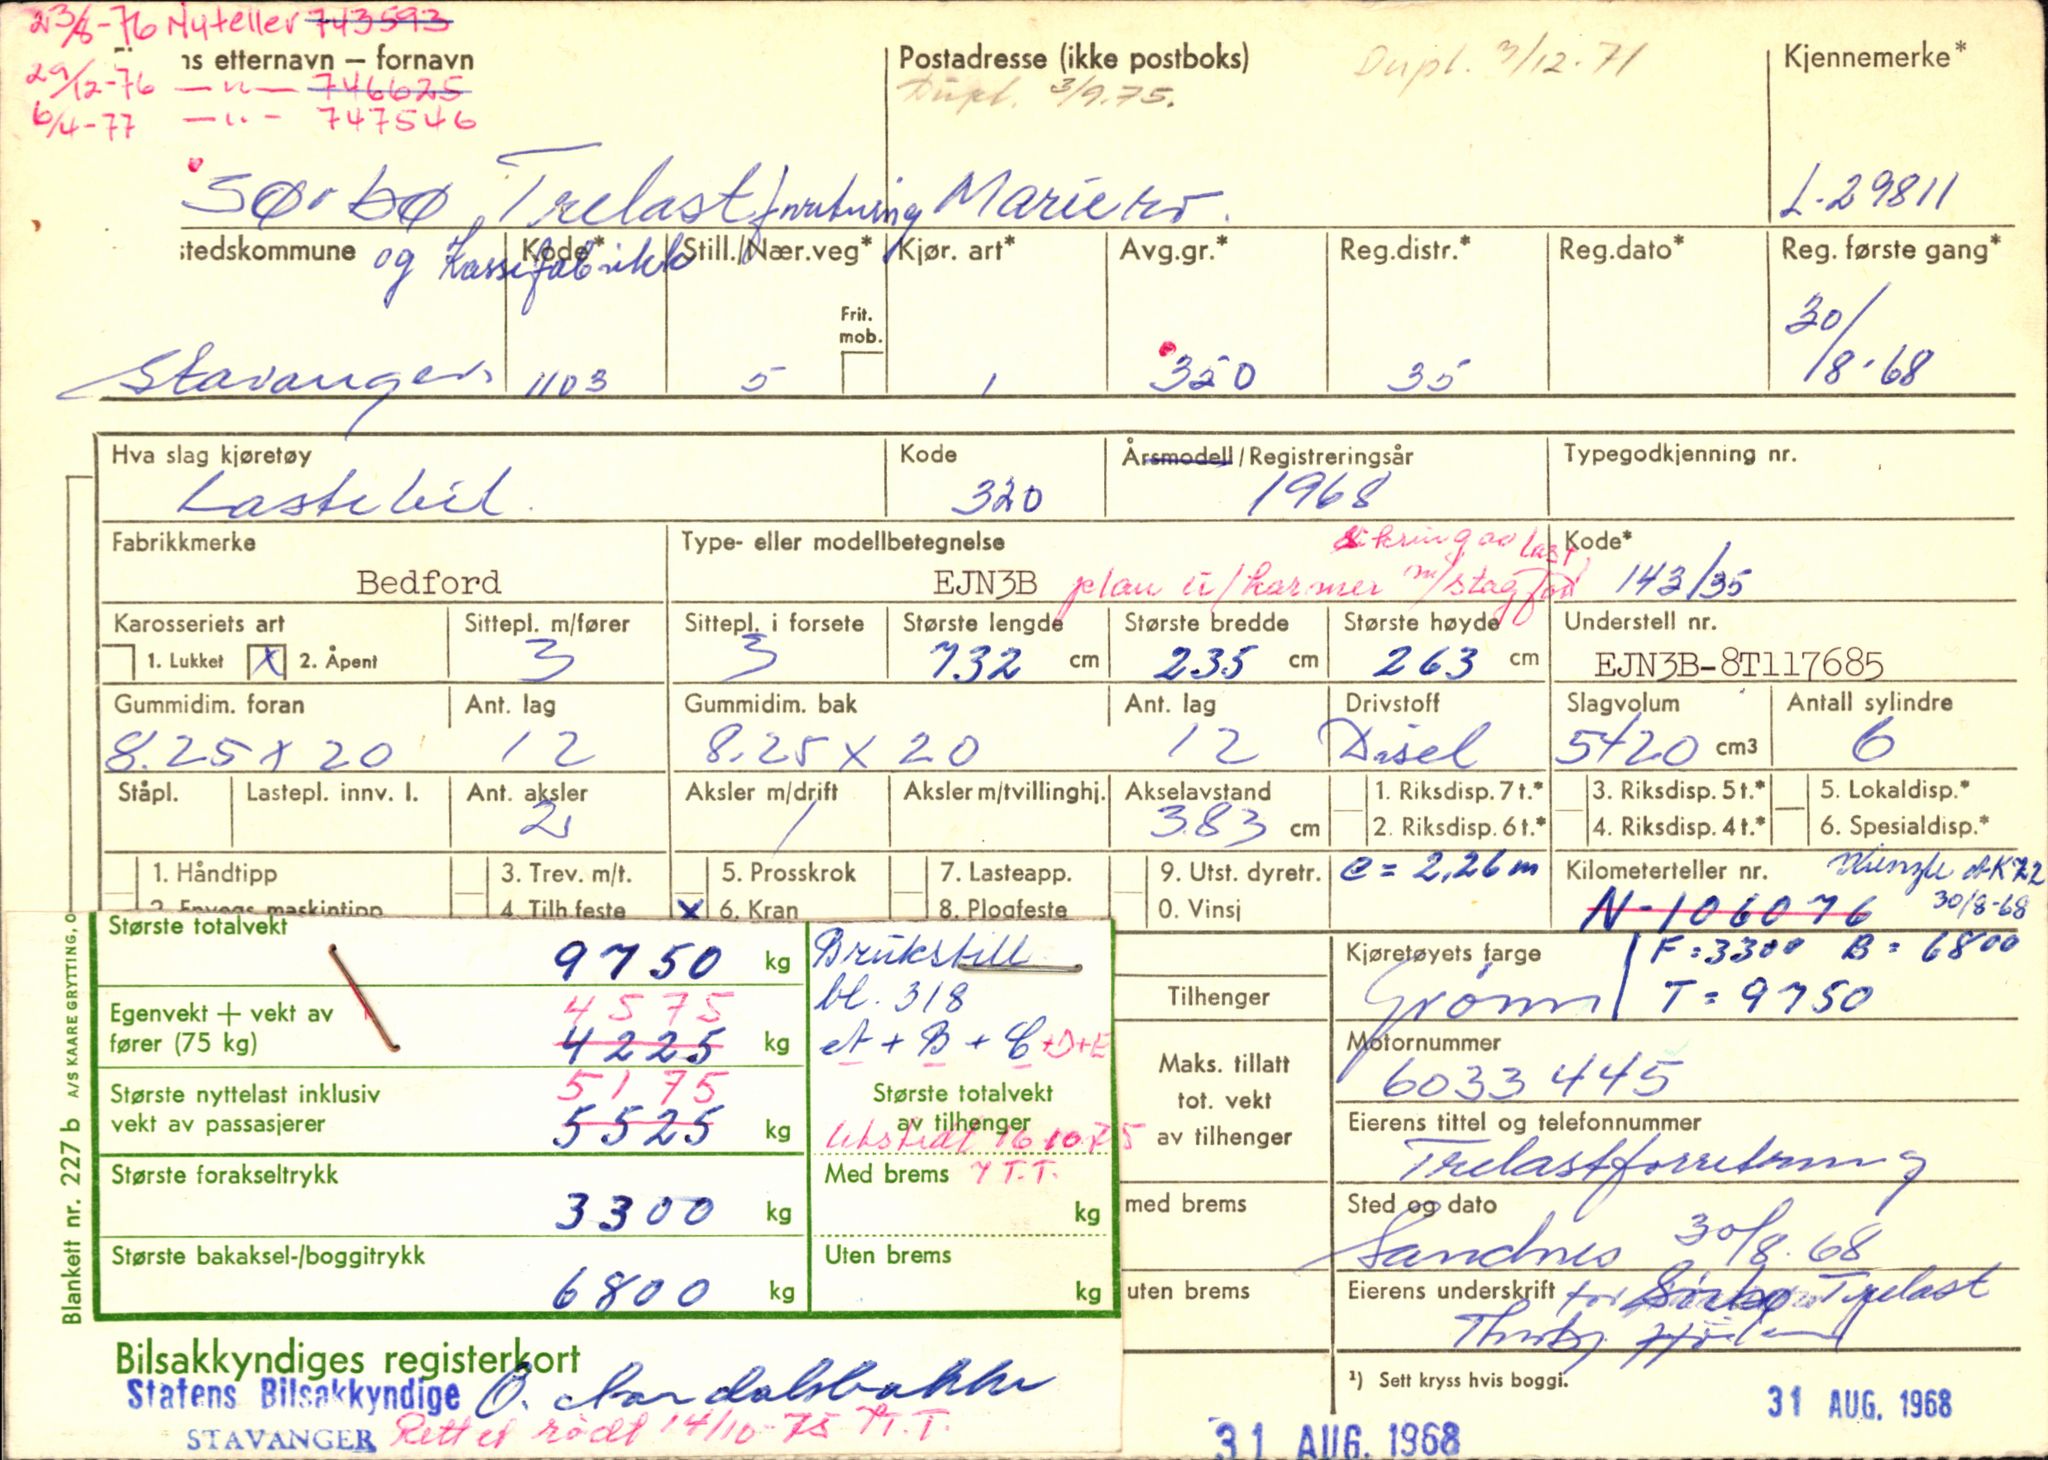 23/8-76 Nyteller 743593
ns etternavn – fornavn
Postadresse (ikke postboks)
Dupl. 3/12-71
Kjennemerke*
29/12-76 —"— 746625
Dupl. 3/9.75.
6/4-77 —"— 747546
Sørbø Trelastforretning Mariero.
L-29811
og Kassefabrikk
stedskommune
Kode*
Still./Nær.veg*
Kjør. art*
Avg.gr.*
Reg.distr.*
Reg.dato*
Reg. første gang*
Frit. mob.
Stavanger
1103
5
1
320
35
30/8-68
Hva slag kjøretøy
Kode
Årsmodell/Registreringsår
Typegodkjenning nr.
Lastebil
320
1968
Fabrikkmerke
Type- eller modellbetegnelse
sikring av last
Kode*
Bedford
EJN3B
plan u/karmer m/stag
143/35
Karosseriets art
Sittepl. m/fører
Sittepl. i forsete
Største lengde
Største bredde
Største høyde
Understell nr.
1. Lukket X 2. Åpent
3
3
732 cm
235 cm
263 cm
EJN3B-8T117685
Gummidim. foran
Ant. lag
Gummidim. bak
Ant. lag
Drivstoff
Slagvolum
Antall sylindre
8.25 x 20
12
8.25 x 20
12
Disel
5420 cm3
6
Ståpl.
Lastepl. innv. l.
Ant. aksler
Aksler m/drift
Aksler m/tvillinghj.
Akselavstand
1. Riksdisp. 7 t.*
3. Riksdisp. 5 t.*
5. Lokaldisp.*
2
1
383 cm
2. Riksdisp. 6 t.*
4. Riksdisp. 4 t.*
6. Spesialdisp.*
1. Håndtipp
3. Trev. m/t.
5. Prosskrok
7. Lasteapp.
9. Utst. dyretr.
c = 2,26 m
Kilometerteller nr.
Kienzle
2. Envegs maskintipp
4. Tilh.feste
X 6. Kran
8. Plogfeste
0. Vinsj
N-106076
30/8-68
Største totalvekt
9750 kg
Brukstill
bl. 318
A + B + C +D+E
Egenvekt + vekt av
fører (75 kg)
4575
4225 kg
Største nyttelast inklusiv
vekt av passasjerer
5175
5525 kg
Største totalvekt
av tilhenger
16.10.75
Største forakseltrykk
3300 kg
Med brems T.T.
kg
Største bakaksel-/boggitrykk
6800 kg
Uten brems
kg
Tilhenger
Maks. tillatt
tot. vekt
av tilhenger
med brems
uten brems
Kjøretøyets farge
F = 3300 B = 6800
Grønn
T = 9750
Motornummer
6033445
Eierens tittel og telefonnummer
Trelastforretning
Sted og dato
Sandnes 30/8.68
Eierens underskrift
for Sørbø Trelast
¹) Sett kryss hvis boggi.
Blankett nr. 227 b A/S KAARE GRYTTING, O
Bilsakkyndiges registerkort
Statens Bilsakkyndige
STAVANGER
Rettet rødt 14/10-75 T.T.
31 AUG. 1968
31 AUG. 1968